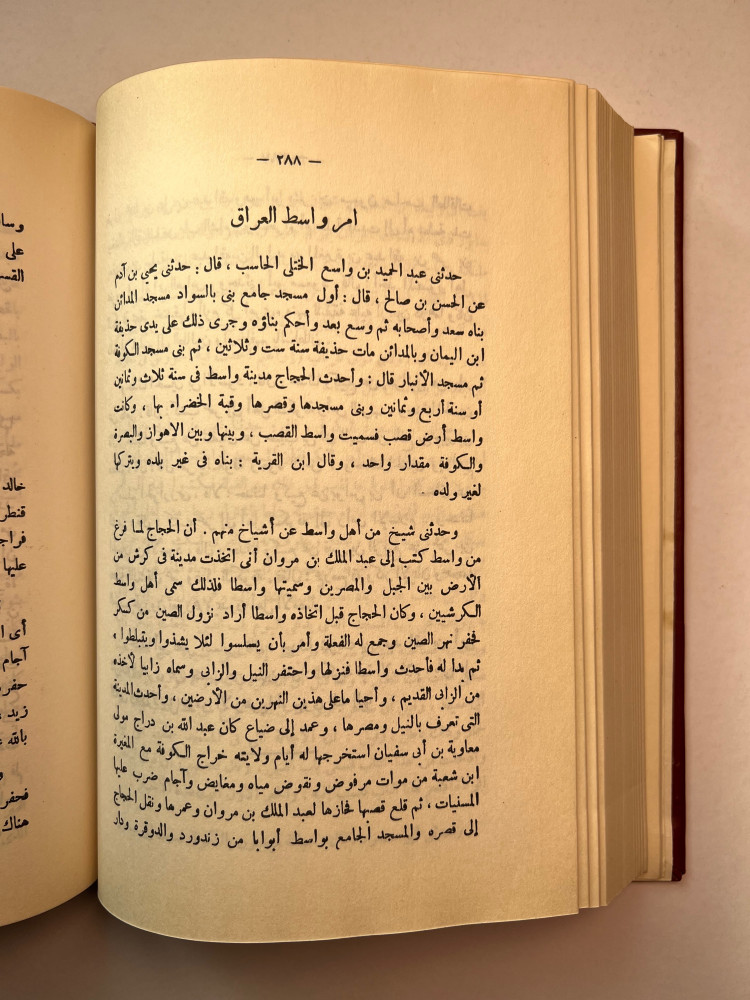 — ٢٨٨ —
امر واسط العراق
حدثنى عبد الحميد بن واسع الختلى الحاسب ، قال : حدثنى يحيى بن آدم
عن الحسن بن صالح ، قال : أول مسجد جامع بنى بالسواد مسجد المدائن
بناه سعد وأصحابه ثم وسع بعد وأحكم بناؤه وجرى ذلك على يدى حذيفة
ابن اليمان وبالمدائن مات حذيفة سنة ست وثلاثين ، ثم بنى مسجد الكوفة
ثم مسجد الأنبار قال : وأحدث الحجاج مدينة واسط فى سنة ثلاث وثمانين
أو سنة أربع وثمانين وبنى مسجدها وقصرها وقبة الخضراء بها ، وكانت
واسط أرض قصب فسميت واسط القصب ، وبينها وبين الاهواز والبصرة
والكوفة مقدار واحد ، وقال ابن القرية : بناه فى غير بلده ويتركها
لغير ولده .
وحدثنى شيخ من أهل واسط عن أشياخ منهم . أن الحجاج لما فرغ
من واسط كتب إلى عبد الملك بن مروان أنى اتخذت مدينة فى كرش من
الأرض بين الجبل والمصرين وسميتها واسطا فلذلك سمى أهل واسط
الكرشيين ، وكان الحجاج قبل اتخاذه واسطا أراد نزول الصين من كسكر
فحفر نهر الصين وجمع له الفعلة وأمر بأن يسلسوا لئلا يشذوا ويتبلطوا ،
ثم بدا له فأحدث واسطا فنزلها واحتفر النيل والزابى وسماه زابيا لأخذه
من الزابى القديم ، وأحيا ماعلى هذين النهرين من الأرضين ، وأحدث المدينة
التى تعرف بالنيل ومصرها ، وعمد إلى ضياع كان عبد الله بن دراج مولى
معاوية بن أبى سفيان استخرجها له أيام ولايته خراج الكوفة مع المغيرة
ابن شعبة من موات مرفوض ونقوض مياه ومغايض وآجام ضرب عليها
المسنيات ، ثم قلع قصبها فحازها لعبد الملك بن مروان وعمرها ونقل الحجاج
إلى قصره والمسجد الجامع بواسط أبوابا من زندورد والدوقرة ودار
وسا
على
القس
خالد
قنطر
فراج
عليها
أى ا
آجام
حفر
زيد
بالله
و
فحفر
هناك